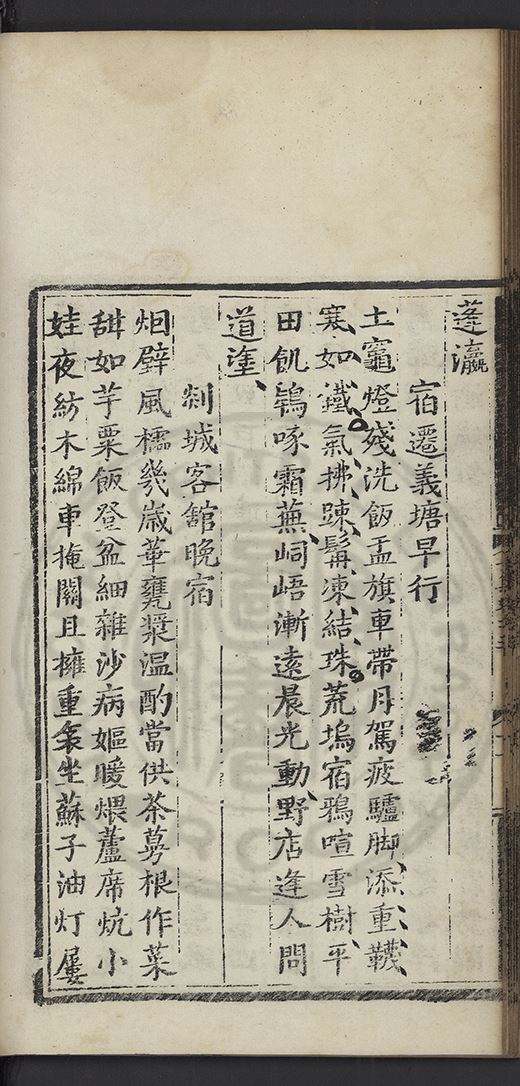 蓬瀛
宿遷義塘早行
土竈燈殘洗飯盂旗車帶月駕疲驢脚添重韈
寒如鐵氣拂踈髯凍結珠荒塢宿鴉喧雪樹平
田飢鴇啄霜蕪峒峿漸遠晨光動野店逢人問
道塗
剡城客舘晩宿
炬壁風檽幾歳華甕漿温酌當供茶蔓根作菜
甜如芋粟飯登盆細雜沙病嫗暖煨蘆席炕小
娃夜紡木綿車掩關且擁重衾坐蘇子油灯屢